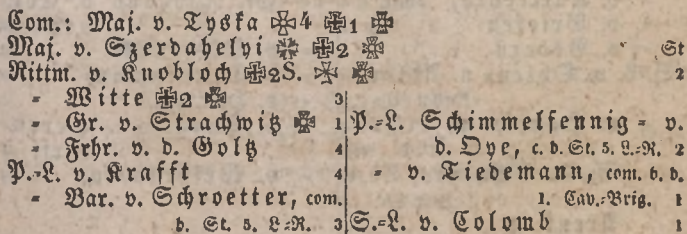 Com.: Maj. v. Tyska 4 1
Maj. v. Szerdahelyi 2 St
Rittm. v. Knobloch 2S. 2
- Witte 2 3
- Gr. v. Strachwitz 1
- Frhr. v. d. Goltz 4
P.-L. v. Krafft 4
- Bar. v. Schroetter, com.
b. St. 5. L.-R. 3
P.-L. Schimmelfennig - v.
d. Oye, c. b. St. 5. L.-R. 2
- v. Tiedemann, com. b. d.
1. Cav.-Brig. 1
S.-L. v. Colomb 1